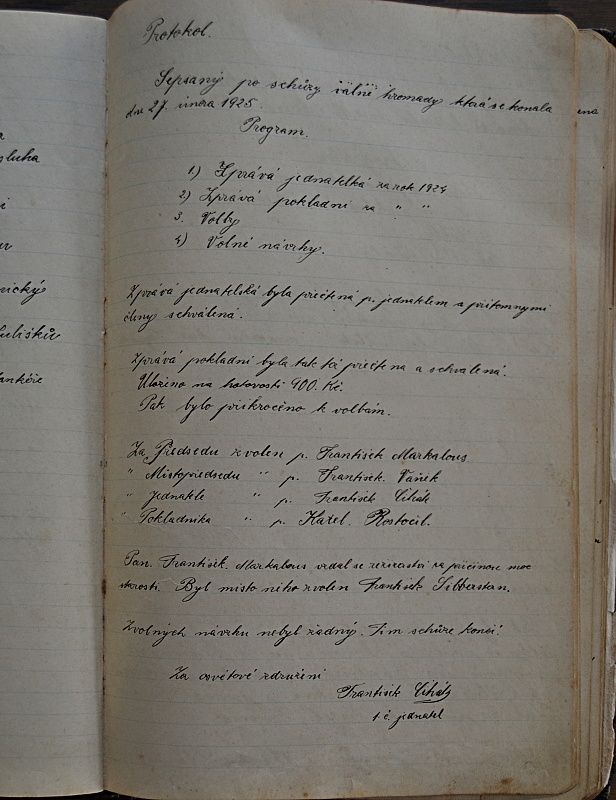 Protokol.
Sepsaný po schůzy valné hromady která se konala
dne 27. února 1925
Program.
1.) Zpravá jednatelká za rok 1924
2.) Zpravá pokladní za " "
3. Volby
4) Volné návrhy.
Zpravá jednatelská byla přečtená p. jednatelem a přitomnymi
členy schválená.
Zpravá pokladní byla tak též přečtena a schvalená.
Uloženo na hotovosti 900. Kč.
Pak bylo přikročeno k volbám.
Za Předsedu zvolen p. František Markalous
" Mistopředsedu " p. František. Vaněk
" Jednatele " p. František Cihák
" Pokladnika " p. Karel. Rostočil.
Pan. František. Markalous vzdal se za přičinou moc
starosti. Byl misto něho zvolen František Silberstan.
Zvolných návrhu nebyl žadný. Tim schůze končí.
Za osvětové združeni
František Cihák
t. č. jednatel
sluha
nický
ulišků